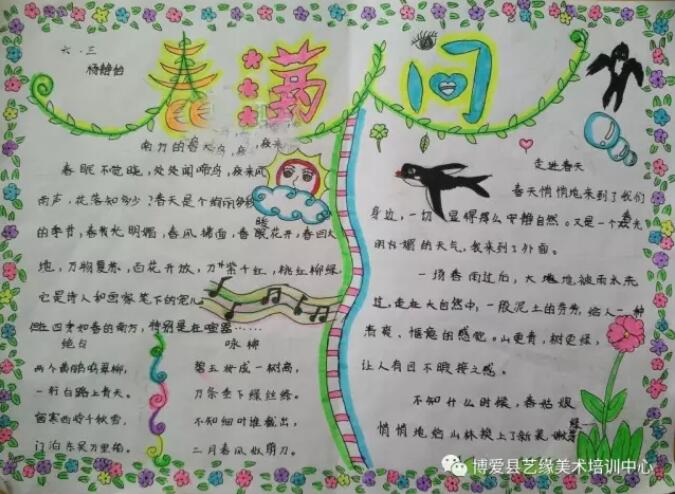 六.三
杨
春满人间
南方的春天鸟,夜来
春眠不觉晓,处处闻啼鸟,夜来风
雨声,花落知多少?春天是个绵雨
的季节,春光明媚,春风拂面,春暖花开,春回大
地,万物复苏,百花开放,万紫千红,桃红柳绿
它是诗人和画家笔下的宠儿
但在四季如春的南方,特别是在
绝句
两个黄鹂鸣翠柳,
一行白路上青天。
窗寒西岭千秋雪,
门泊东吴万里船。
咏柳
碧玉妆成一树高,
万条垂下绿丝绦。
不知细叶谁裁出,
二月春风似剪刀。
走进春天
春天悄悄地来到了我们
身边,一切显得那么安静自然。又是一个
明媚的天气,我来到了外面。
一场春雨过后,大地被雨水洗
过,走在大自然中,一股泥土的芳香,给人一种
清爽、惬意的感觉。山更青,树更绿,
让人有目不暇接之感。
不知什么时候,春姑娘
悄悄地给山林换上了新装,嫩绿
博爱县艺缘美术培训中心